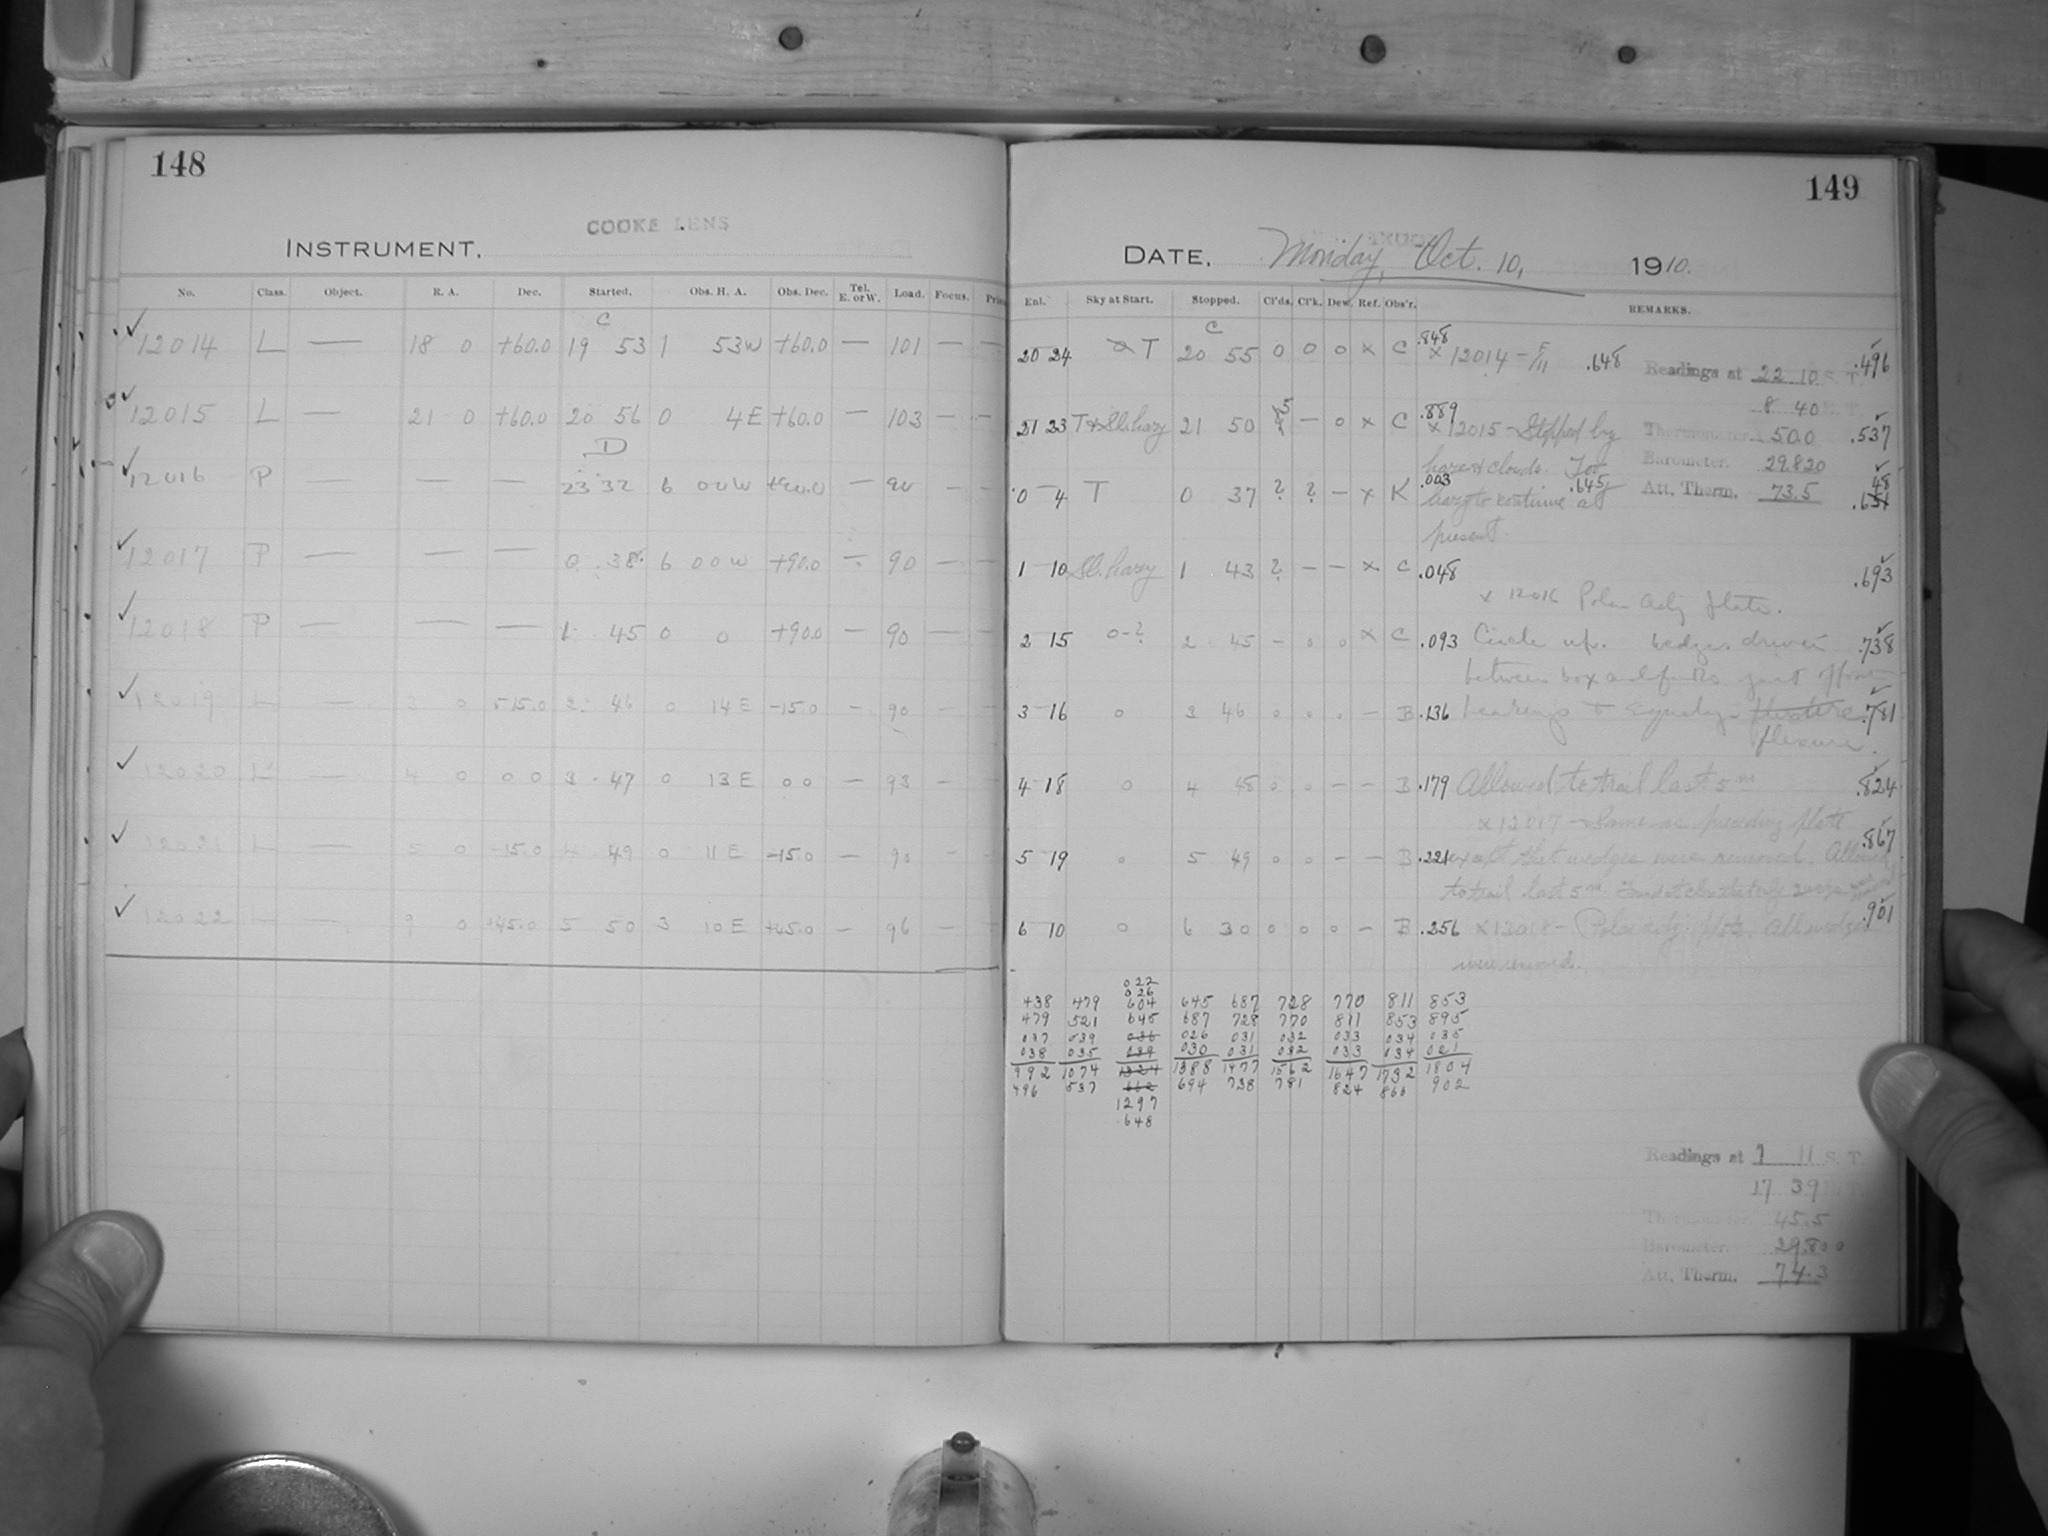 148
COOKE LENS
INSTRUMENT.
No. Class. Object. R. A. Dec. Started. Obs. H. A. Obs. Dec. Tel. E. or W. Load. Focus.
C
✓ 12014 L — 18 0 +60.0 19 53 1 53W +60.0 — 101 — —
✓ 12015 L — 21 0 +60.0 20 56 0 4E +60.0 — 103 — —
D
✓ 12016 P — — — 23 32 6 00W +90.0 — 90 — —
✓ 12017 P — — — 0 38 6 00W +90.0 — 90 — —
✓ 12018 P — — — 1 45 0 0 +90.0 — 90 — —
✓ 12019 L — 3 0 -15.0 2 46 0 14E -15.0 — 90 — —
✓ 12020 L — 4 0 0 0 3 47 0 13E 0 0 — 93 — —
✓ 12021 L — 5 0 -15.0 4 49 0 11E -15.0 — 90 — —
✓ 12022 L — 9 0 +45.0 5 50 3 10E +45.0 — 96 — —
149
DATE. Monday, Oct. 10, 1910.
Enl. Sky at Start. Stopped. Cl'ds. Cl'k. Dew. Ref. Obs'r. REMARKS.
C
20 24 T 20 55 0 0 0 x C .848
21 23 T & Sl. hazy 21 50 5 — 0 x C .889
0 4 T 0 37 ? ? — x K .003
1 10 Sl. hazy 1 43 ? — — x C .048
2 15 0-? 2 45 — 0 0 x C .093
3 16 0 3 46 0 0 0 — B .136
4 18 0 4 48 0 0 — — B .179
5 19 0 5 49 0 0 — — B .221
6 10 0 6 30 0 0 0 — B .256
x 12014 – F/11 .648
x 12015 – Stopped by
haze & clouds. Too
.645
hazy to continue at
present.
x 12016 Polar adj. plate.
Circle up. Wedges driven
between box and
bearings to equalize
flexure.
Allowed to trail last 5 m
x 12017 – Same as preceding plate
except that wedges were removed. Allowed
to trail last 5 m.
x 12018 – Polar adj. plate. All wedges
were removed.
Readings at 22 10 S. T.
8 40
Thermometer. 50.0
Barometer. 29.820
Att. Therm. 73.5
.496
.537
.693
.738
.781
.824
.867
.901
022
026
438 479 604 645 687 728 770 811 853
479 521 645 687 728 770 811 853 895
037 039 036 026 031 032 033 034 035
038 035 039 030 031 032 033 034 021
992 1074 1324 1388 1477 1562 1647 1732 1804
496 537 662 694 738 781 824 866 902
1297
.648
Readings at 7 11 S. T.
17 39
Thermometer. 45.5
Barometer. 29.800
Att. Therm. 74.3